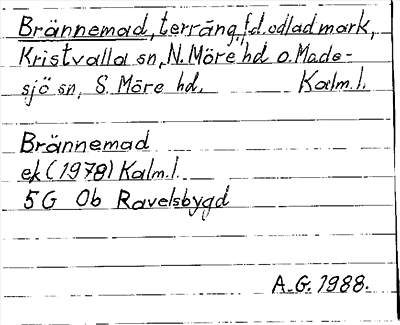 Brännemad, terräng, f.d. odlad mark,
Kristvalla sn, N. Möre hd o. Made-
sjö sn, S. Möre hd. Kalm.l.
Brännemad
ek (1978) Kalm.l.
5G Ob Ravelsbygd
A.G. 1988.